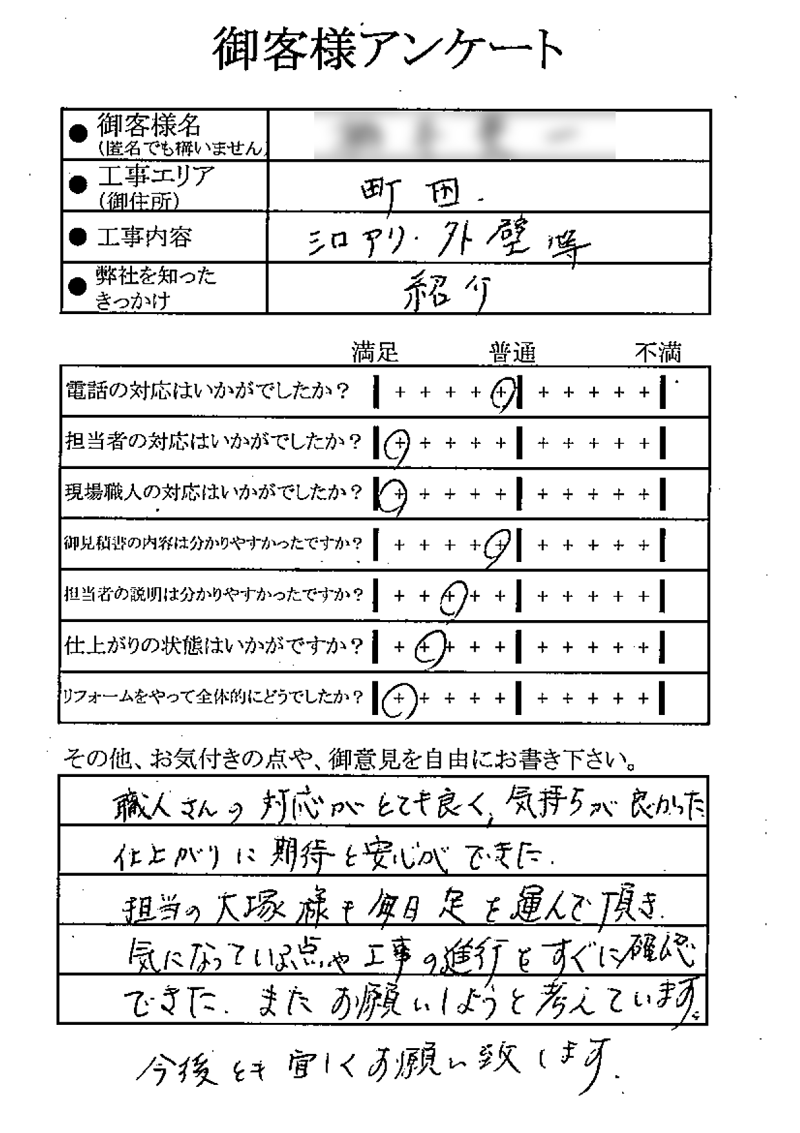 御客様アンケート
● 御客様名
(匿名でも構いません)
● 工事エリア
(御住所)
町田.
● 工事内容
シロアリ・外壁等
● 弊社を知った
きっかけ
紹介
満足 普通 不満
電話の対応はいかがでしたか?
担当者の対応はいかがでしたか?
現場職人の対応はいかがでしたか?
御見積書の内容は分かりやすかったですか?
担当者の説明は分かりやすかったですか?
仕上がりの状態はいかがですか?
リフォームをやって全体的にどうでしたか?
その他、お気付きの点や、御意見を自由にお書き下さい。
職人さんの対応がとても良く, 気持ちが良かった
仕上がりに期待と安心ができた.
担当の大塚様も毎日足を運んで頂き.
気になっている点や工事の進行をすぐに確認
できた. またお願いしようと考えています。
今後とも宜しくお願い致します.